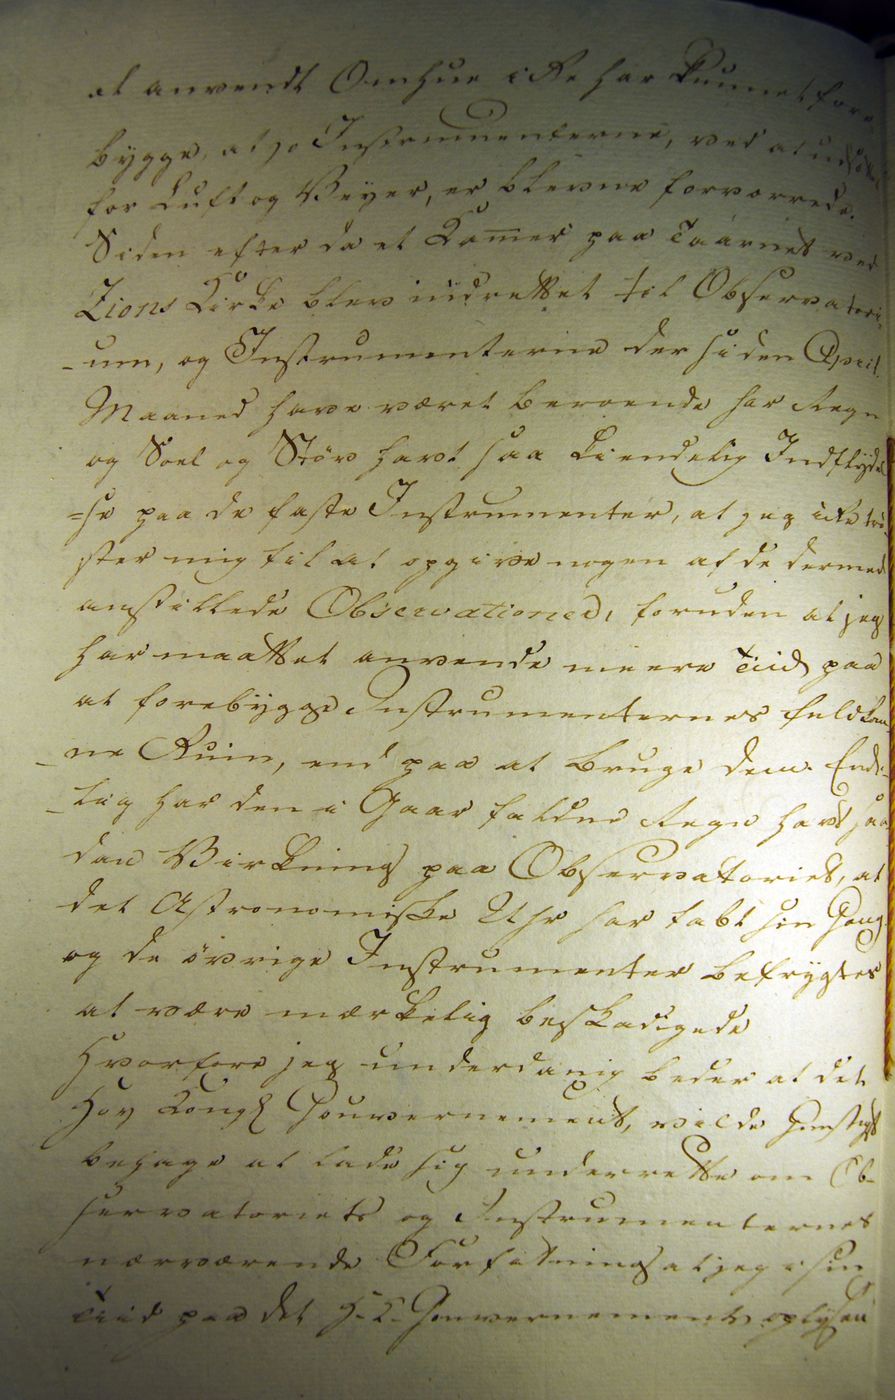 at anvendt Omhue ikke har kunnet fore-
bygge, at jo Instrumenterne, ved at udsættes
for Luft og Veyer, er blevne forværrede.
Siden efter da et Kamer paa Taarnet ved
Zions Kirke blev indrettet til Observatori-
-um, og Instrumenterne der siden April
Maaned have været beroende har Regn
og Soel og Støv havt saa kiendelig Indflydel-
=se paa de faste Instrumenter, at jeg ikke trø-
ster mig til at opgive nogen af de dermed
anstillede Observationer, foruden at jeg
har maattet anvende meere Tiid paa
at forebygge Instrumenternes fuldkom-
-ne Ruin, end paa at bruge dem. Ende-
-lig har den i Gaar faldne Regn havt saa
dan Virkning paa Observatoriet, at
det Astronomiske Uhr har tabt sin Gang
og de øvrige Instrumenter befrygtes
at være mærkelig beskadigede
Hvorfore jeg underdanig beder at det
Høy Kongl Gouvernement, vilde gunstigst
behage at lade sig underrette om Ob-
servatoriets og Instrumenternes
nærværende Forfatning at jeg i sin
Tiid paa det H. K. Gouvernements